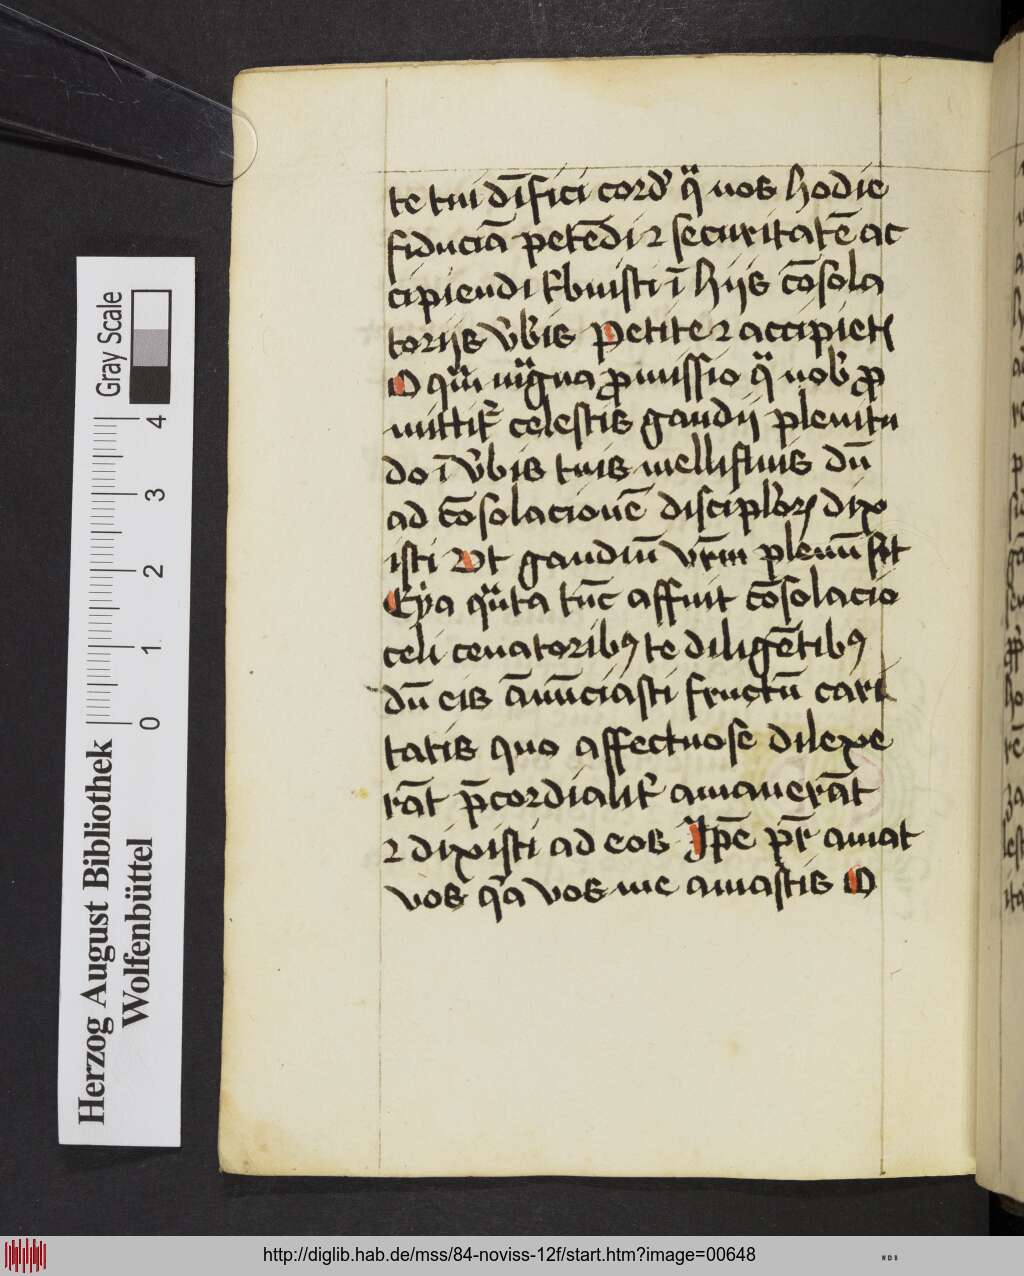 te tui dīfici cord' qͣ uos hodie
fiduciā petēdi ⁊ securitatē ac
cipiendi t'buisti ī hijs cōsola
torijs v̓bis Petite ⁊ accipietꝭ
O qͣm magna ꝓmissio qͣ nob̓ ꝓ
mittit᷑ celestis gaudij plenitu
do ī v̓bis tuis mellifluis dū
ad cōsolacionē discipl'oꝝ dix
isti Vt gaudiū vr̄m plenū sit
Eya qͣnta tūc affuit cōsolacio
celi cenatoribꝰ te diligētibꝰ
dū eis ānūciasti fructū cari
tatis quo affectuose dilexe
rāt p̄cordialit' amauerāt
⁊ dixisti ad eos Ip̄e pr̄ amat
vos qͣ vos me amastis O
Gray Scale
4
3
2
1
0
Herzog August Bibliothek
Wolfenbüttel
http://diglib.hab.de/mss/84-noviss-12f/start.htm?image=00648